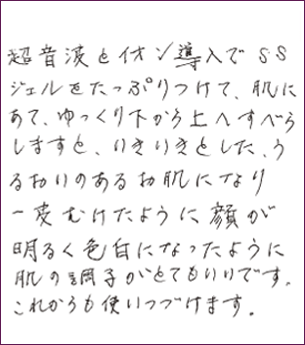 超音波とイオン導入でSS
ジェルをたっぷりつけて、肌に
あて、ゆっくり下から上へすべら
しますと、いきいきとした、う
るおいのあるお肌になり
一皮むけたように顔が
明るく色白になったように
肌の調子がとてもいいです。
これからも使いつづけます。